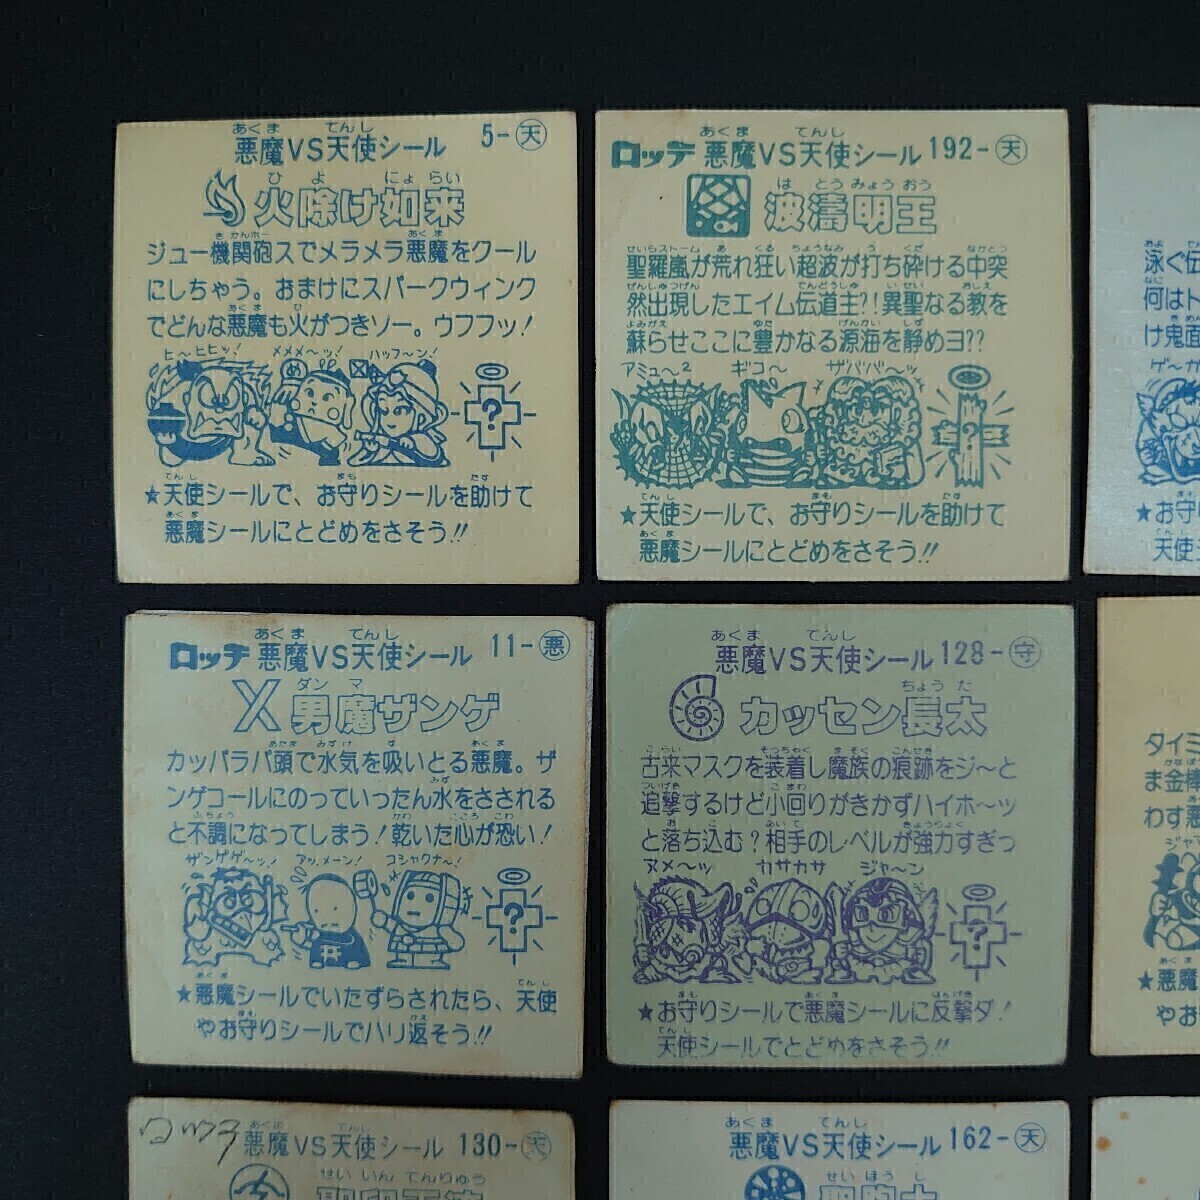 悪魔VS天使シール 5-天
あくま てんし
火除け如来
ひよ にょらい
ジュー機関砲スでメラメラ悪魔をクール
にしちゃう。おまけにスパークウィンク
でどんな悪魔も火がつきソー。ウフフッ!
ヒ〜ヒヒッ! メメメ〜ッ! ハッフ〜ン!
?
★天使シールで、お守りシールを助けて
悪魔シールにとどめをさそう!!
ロッテ 悪魔VS天使シール 192-天
あくま てんし
波濤明王
はとうみょうおう
聖羅嵐が荒れ狂い超波が打ち砕ける中突
然出現したエイム伝道主?!異聖なる教を
蘇らせここに豊かなる源海を静めヨ??
アミュ〜2 ギコ〜 ザババ〜ッ
?
★天使シールで、お守りシールを助けて
悪魔シールにとどめをさそう!!
泳ぐ伝
何はト
け鬼面
ゲ〜ガ
★お守
天使シ
ロッテ 悪魔VS天使シール 11-悪
あくま てんし
男魔ザンゲ
ダンマ
カッパラパ頭で水気を吸いとる悪魔。ザ
ンゲコールにのっていったん水をさされる
と不調になってしまう!乾いた心が恐い!
ザンゲゲ〜ッ! アッメーン! コシャクナ〜!
?
★悪魔シールでいたずらされたら、天使
やお守りシールでハリ返そう!!
悪魔VS天使シール 128-守
あくま てんし
カッセン長太
ちょうた
古来マスクを装着し魔族の痕跡をジ〜と
追撃するけど小回りがきかずハイホ〜ッ
と落ち込む?相手のレベルが強力すぎっ
ヌメ〜ッ カサカサ ジャ〜ン
?
★お守りシールで悪魔シールに反撃ダ!
天使シールでとどめをさそう!!
タイミ
ま金棒
わす悪
★悪魔
やお守
ロッテ 悪魔VS天使シール 130-天
あくま てんし
せいいんてんりゅう
悪魔VS天使シール 162-天
あくま てんし
せいほうし
聖砲士